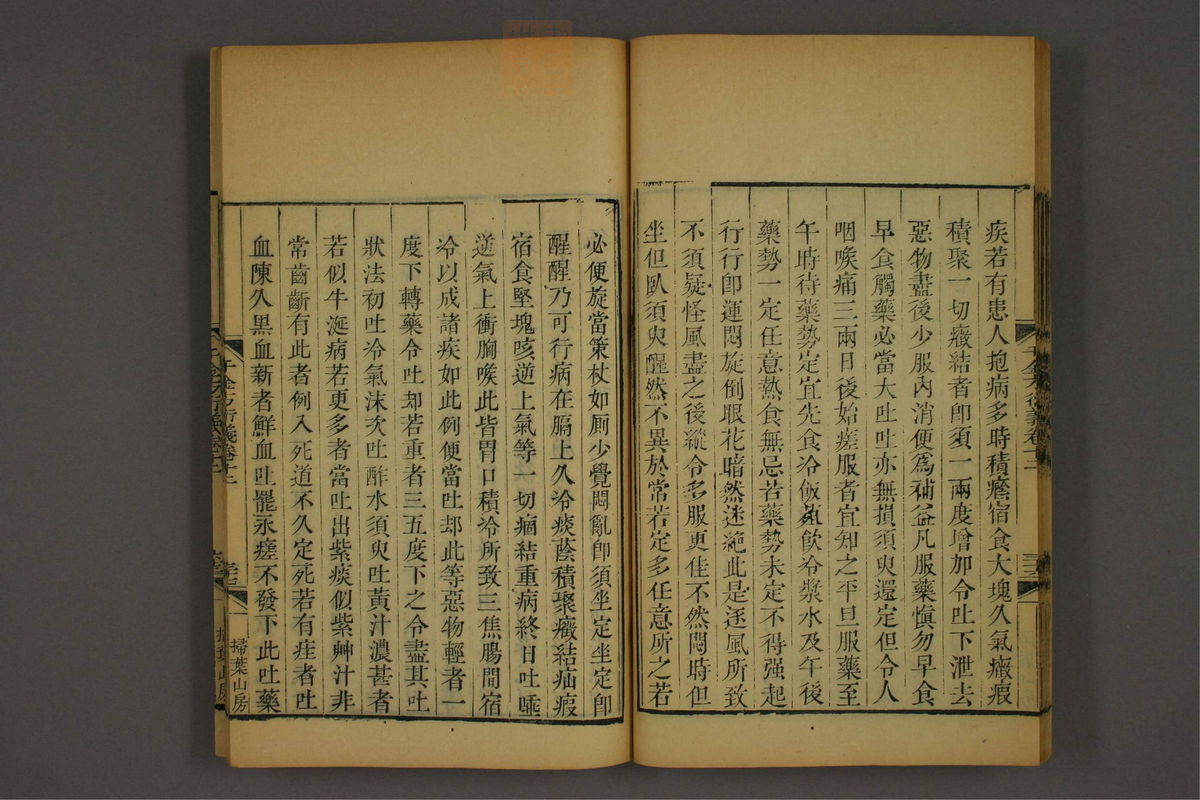 疾若有患人抱病多時積癊宿食大塊久氣癥瘕
積聚一切癥結者卽須一兩度增加令吐下泄去
惡物盡後少服內消便爲補益凡服藥愼勿早食
早食觸藥必當大吐吐亦無損須臾還定但令人
咽喉痛三兩日後始瘥服者宜知之平旦服藥至
午時待藥勢定宜先食冷飯菰飮冷漿水及午後
藥勢一定任意熱食無忌若藥勢未定不得强起
行行卽運悶旋倒眼花暗然迷絶此是逐風所致
不須疑怪風盡之後縱令多服更佳不然悶時但
坐但臥須臾醒然不異於常若定多任意所之若
必便旋當策杖如厠少覺悶亂卽須坐定坐定卽
醒醒乃可行病在膈上久冷痰蔭積聚癥結疝瘕
宿食堅塊咳逆上氣等一切痼結重病終日吐唾
逆氣上衝胸喉此皆胃口積冷所致三焦腸間宿
冷以成諸疾如此例便當吐却此等惡物輕者一
度下轉藥令吐却若重者三五度下之令盡其吐
狀法初吐冷氣沫次吐酢水須臾吐黃汁濃甚者
若似牛涎病若更多者當吐出紫痰似紫艸汁非
常齒齗有此者例入死道不久定死若有疰者吐
血陳久黑血新者鮮血吐罷永瘥不發下此吐藥
千金方衍義卷十二
掃葉山房